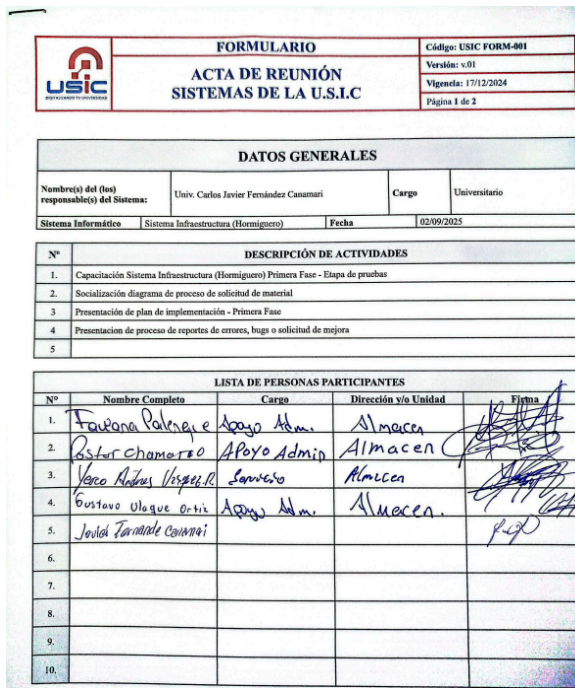 FORMULARIO
ACTA DE REUNIÓN
SISTEMAS DE LA U.S.I.C
Código: USIC FORM-001
Versión: v.01
Vigencia: 17/12/2024
Página 1 de 2
usic
DIGITALIZANDO TU UNIVERSIDAD
DATOS GENERALES
Nombre(s) del (los) responsable(s) del Sistema: Univ. Carlos Javier Fernández Canamari Cargo Universitario
Sistema Informático Sistema Infraestructura (Hormiguero) Fecha 02/09/2025
Nº DESCRIPCIÓN DE ACTIVIDADES
1. Capacitación Sistema Infraestructura (Hormiguero) Primera Fase - Etapa de pruebas
2. Socialización diagrama de proceso de solicitud de material
3 Presentación de plan de implementación - Primera Fase
4 Presentacion de proceso de reportes de errores, bugs o solicitud de mejora
5
LISTA DE PERSONAS PARTICIPANTES
Nº Nombre Completo Cargo Dirección y/o Unidad Firma
1. Palenque Apoyo Adm. Almacen
2. Pastor Chamorro APOYO Admin Almacen
3. Yerco Andres Almacen
4. Gustavo Ortiz Apoyo Adm. Almacen.
5. Javier
6.
7.
8.
9.
10.